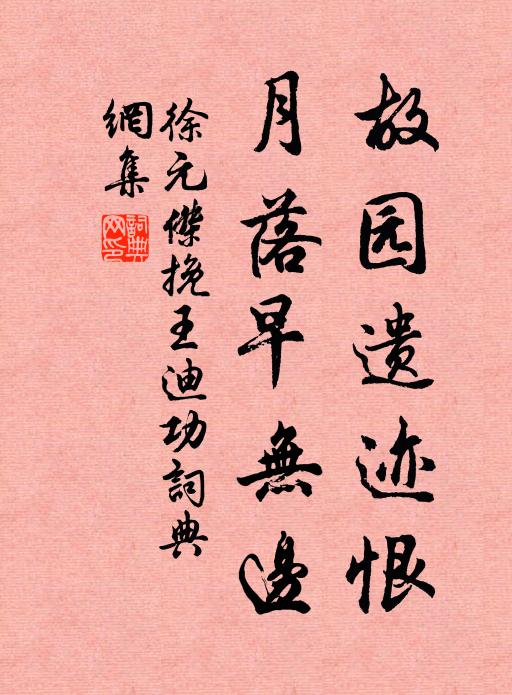 故园遗迹恨
月落早無邊
徐元傑挽王迪功詞典
網集
詞典
网印